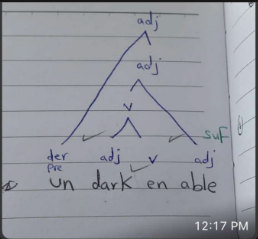 adj
adj
v
suf
der adj v adj
pre
un dark en able
12:17 PM